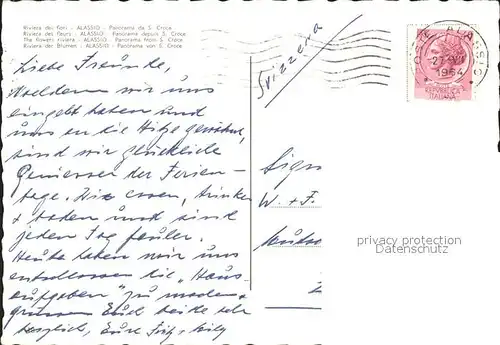 Riviera dei fiori - ALASSIO - Panorama da S. Croce
Riviera des fleurs - ALASSIO - Panorama depuis S. Croce
The flowers riviera - ALASSIO - Panorama from S. Croce
Riviera der Blumen - ALASSIO - Panorama von S. Croce
Liebe Freunde,
Nachdem wir uns
eingelebt haben und
uns an die Hitze gewöhnt,
sind wir glückliche
Geniesser der Ferien-
tage. Wir essen, trinken
+ baden und sind
jeden Tag fauler.
Heute haben wir uns
entschlossen die "Haus-
aufgaben" zu machen +
grüssen Euch beide sehr
herzlich, Eure Fritz +
Svizzera
ALASSIO
1964
REPVBBLICA
ITALIANA
Sign
W. + F.
privacy protection
Datenschutz